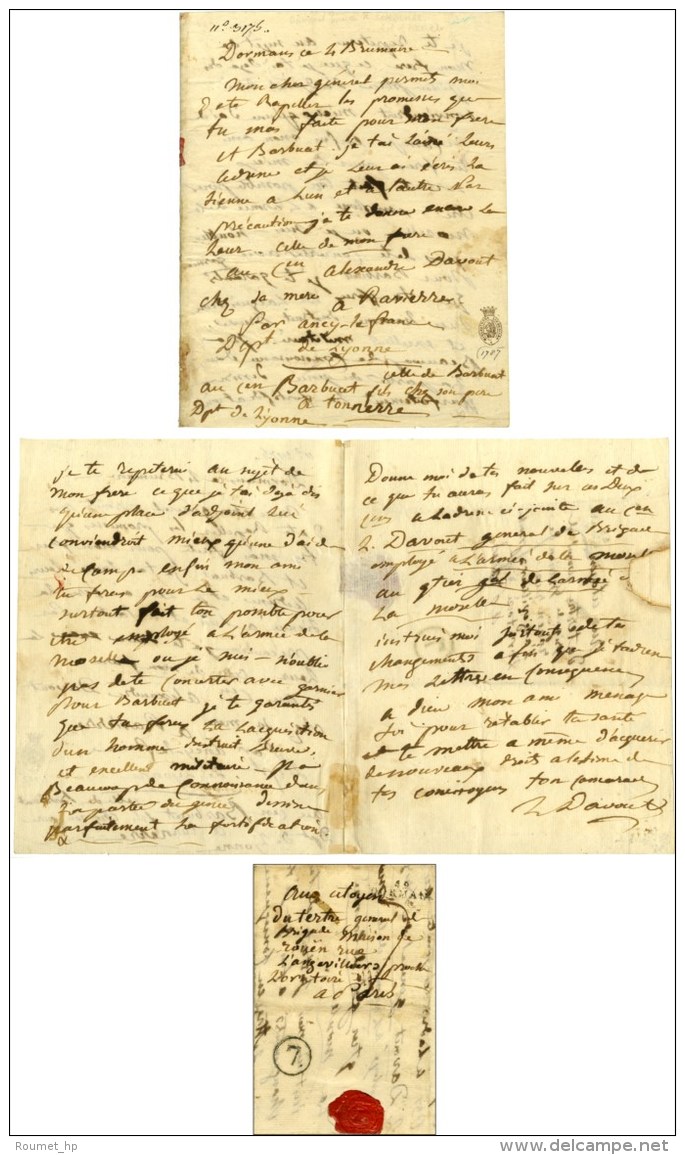 Dormans ce 4 Brumaire
Mon cher general permets moi
de te Rapeller les promesses que
tu mas faite pour mon frere
et Barbuat. je tai laissé leurs
adresse et je leur ai écris la
tienne a lun et a lautre Par
précaution je te donne encore la
leur celle de mon frere
au Cen alexandre Davout
chez sa mere a Ravierre
Par ancy-le-franc
Dpt de Lyonne
celle de Barbuat
au cen Barbuat fils chez son pere
a tonnerre
Dpt de Lyonne
(1797)
je te repeterai au sujet de
mon frere ce que je tai deja dis
quune place d'adjoint lui
conviendroit mieux quune d'aide
de camp enfin mon ami
tu feras pour le mieux
surtout fait ton possible pour
employé a L'armée de la
Moselle ou je suis - noublie
pas de te concerter avec garnier
pour Barbuat je te garants
que tu feras la Lacquisition
d'un homme instruit
et excellent militaire
Beaucoup de Connoissance dans
parties du genie dessine
parfaitement la fortification
Donne moi de tes nouvelles et de
ce que tu auras fait sur ces deux
a Ladresse ci-jointe au Cen
L. Davout general de Brigade
employé a L'armée de la Moselle
au qtier gal de Larmée de
La Moselle
instruis moi surtout de tes
changements afin que j'adresse
mes Lettres en Consequence
a dieu mon ami menage
toi pour retablir ta santé
et te mettre a même d'acquerir
de nouveaux droits a lestime de
tes concitoyens ton camarade
L Davout
Au citoyen
Dutertre general de
Brigade Maison de
rouën rue
L'angevilliers proche
L'oratoire
a Paris
7
Roumet_hp
delcampe.net